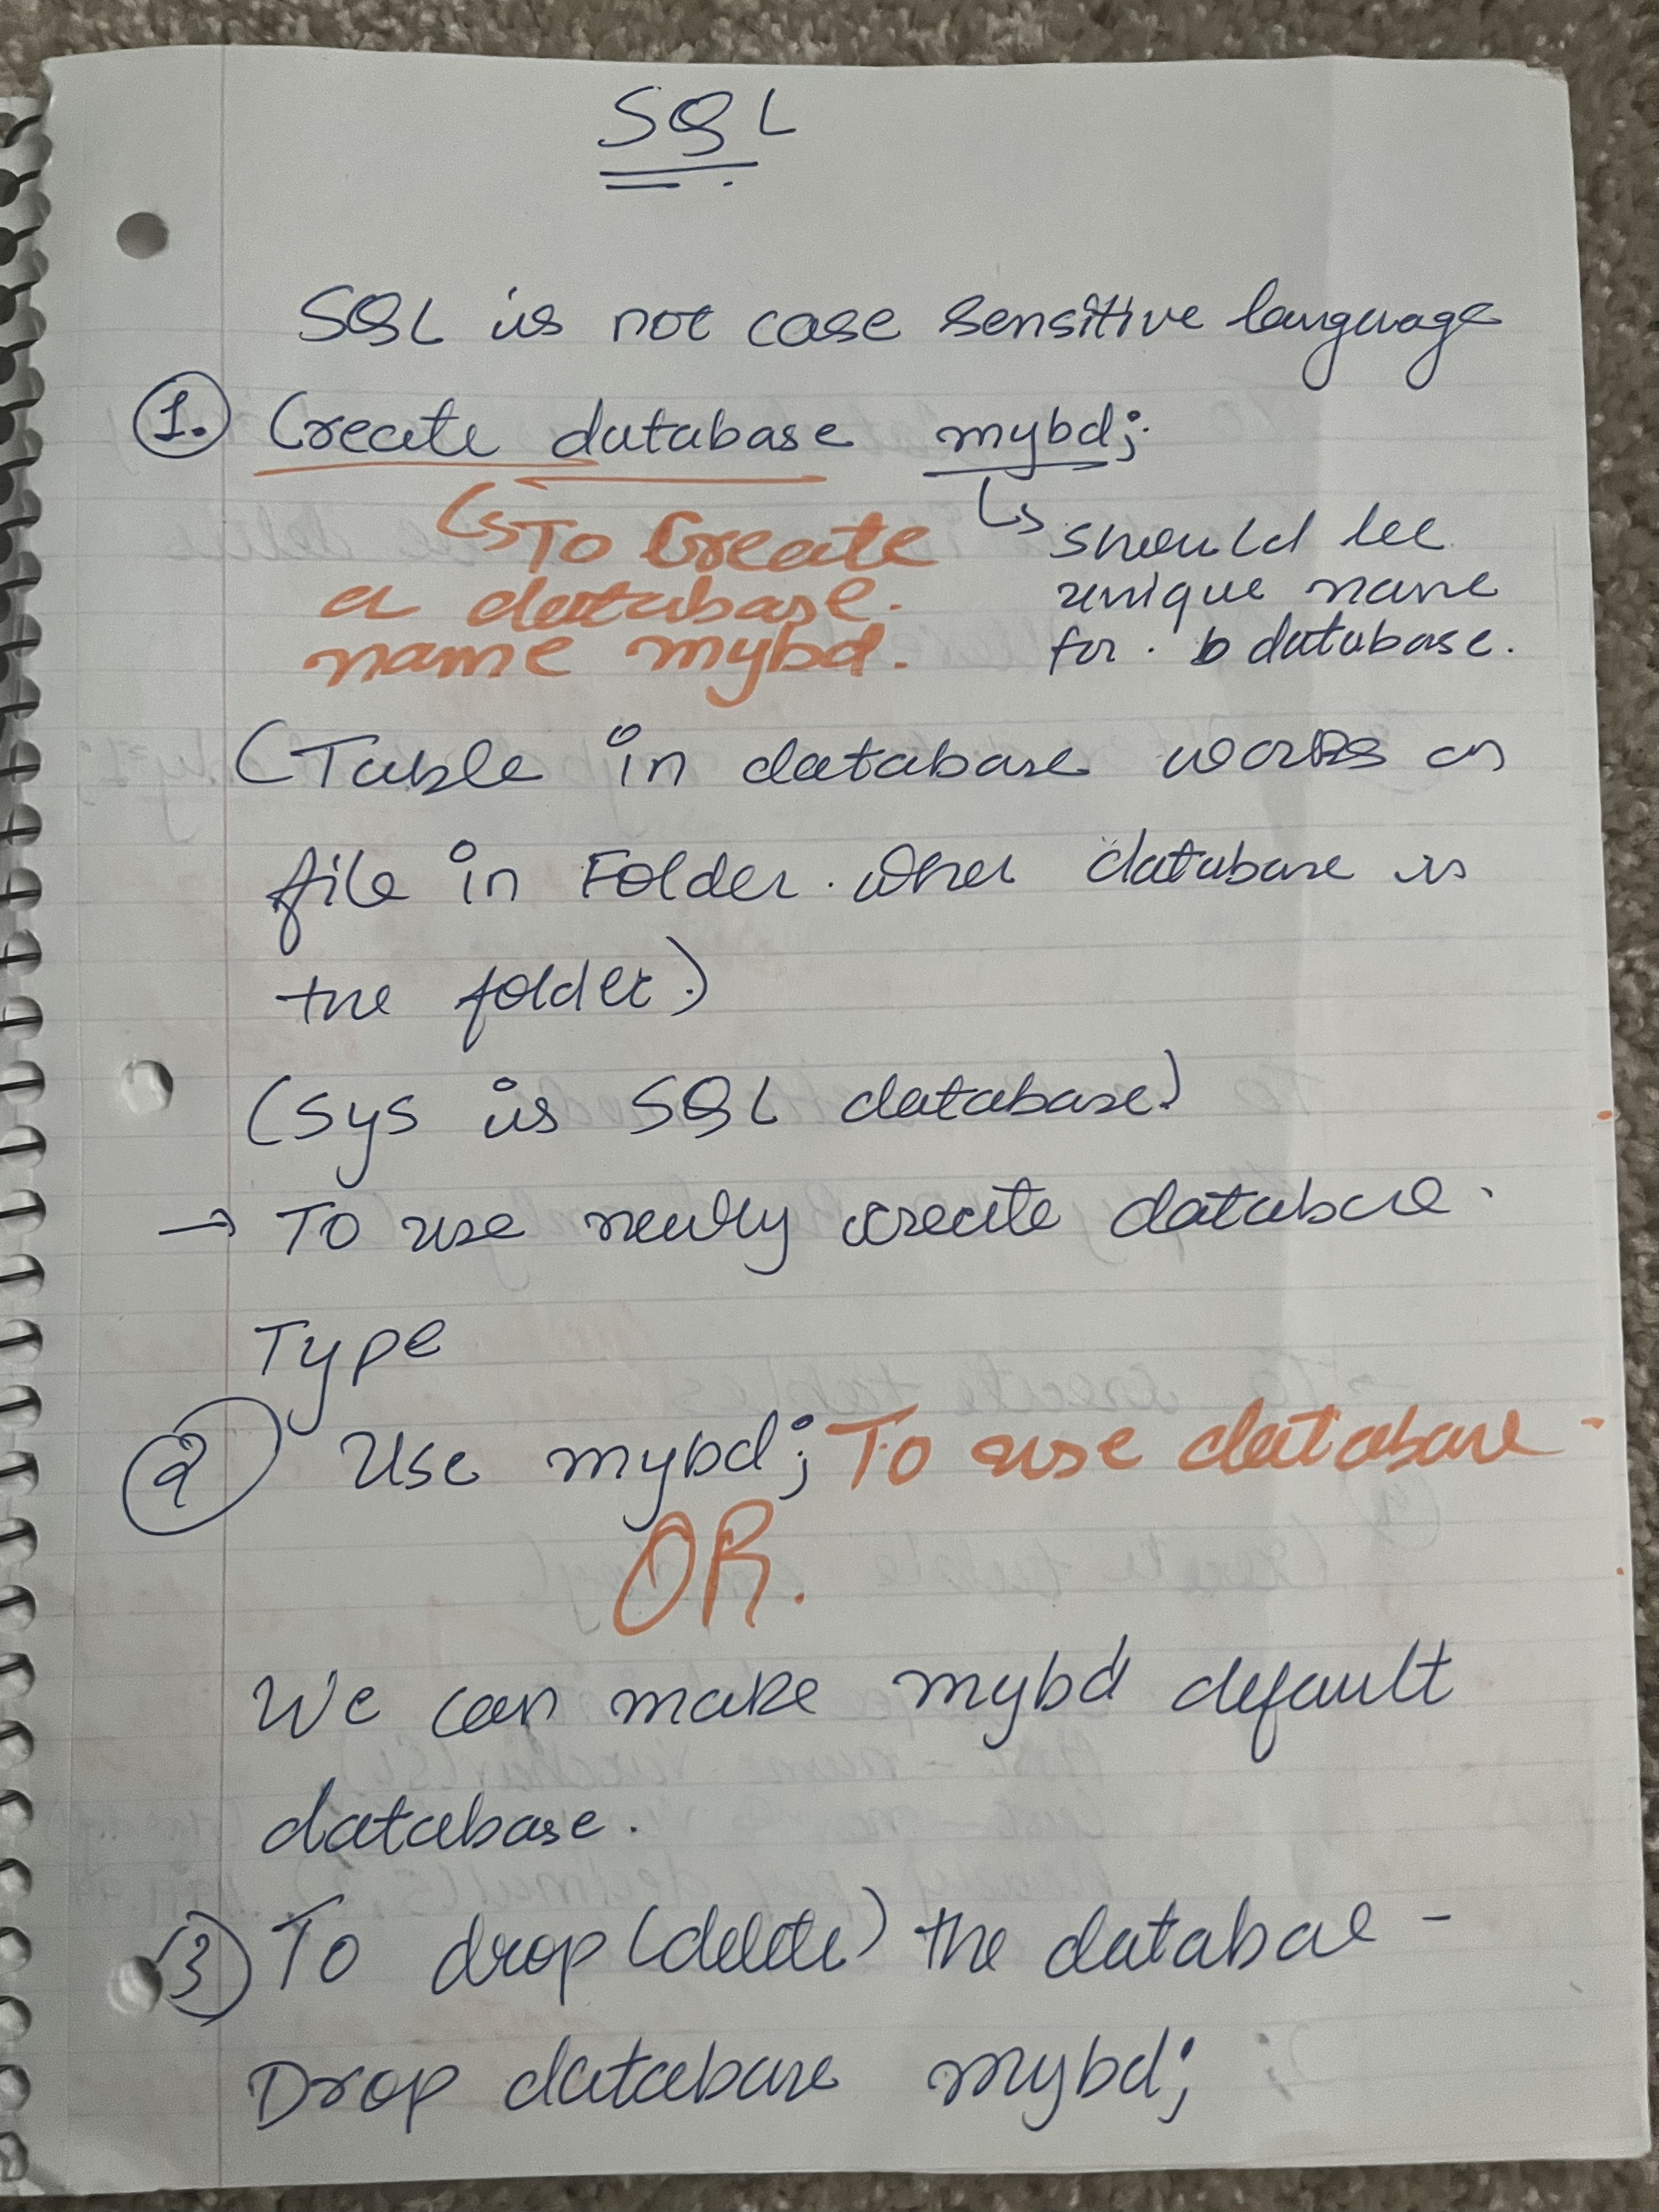 SQL
SQL is not case sensitive language
1. Create database mybd;
↳ To Create
a database.
name mybd.
↳ should be
unique name
for. database.
(Table in database works as
file in Folder. when database is
the folder.)
(Sys is SQL database)
→ To use newly create database.
Type
2 Use mybd; To use database -
OR.
We can make mybd default
database.
3) To drop (delete) the databae -
Drop database mybd;